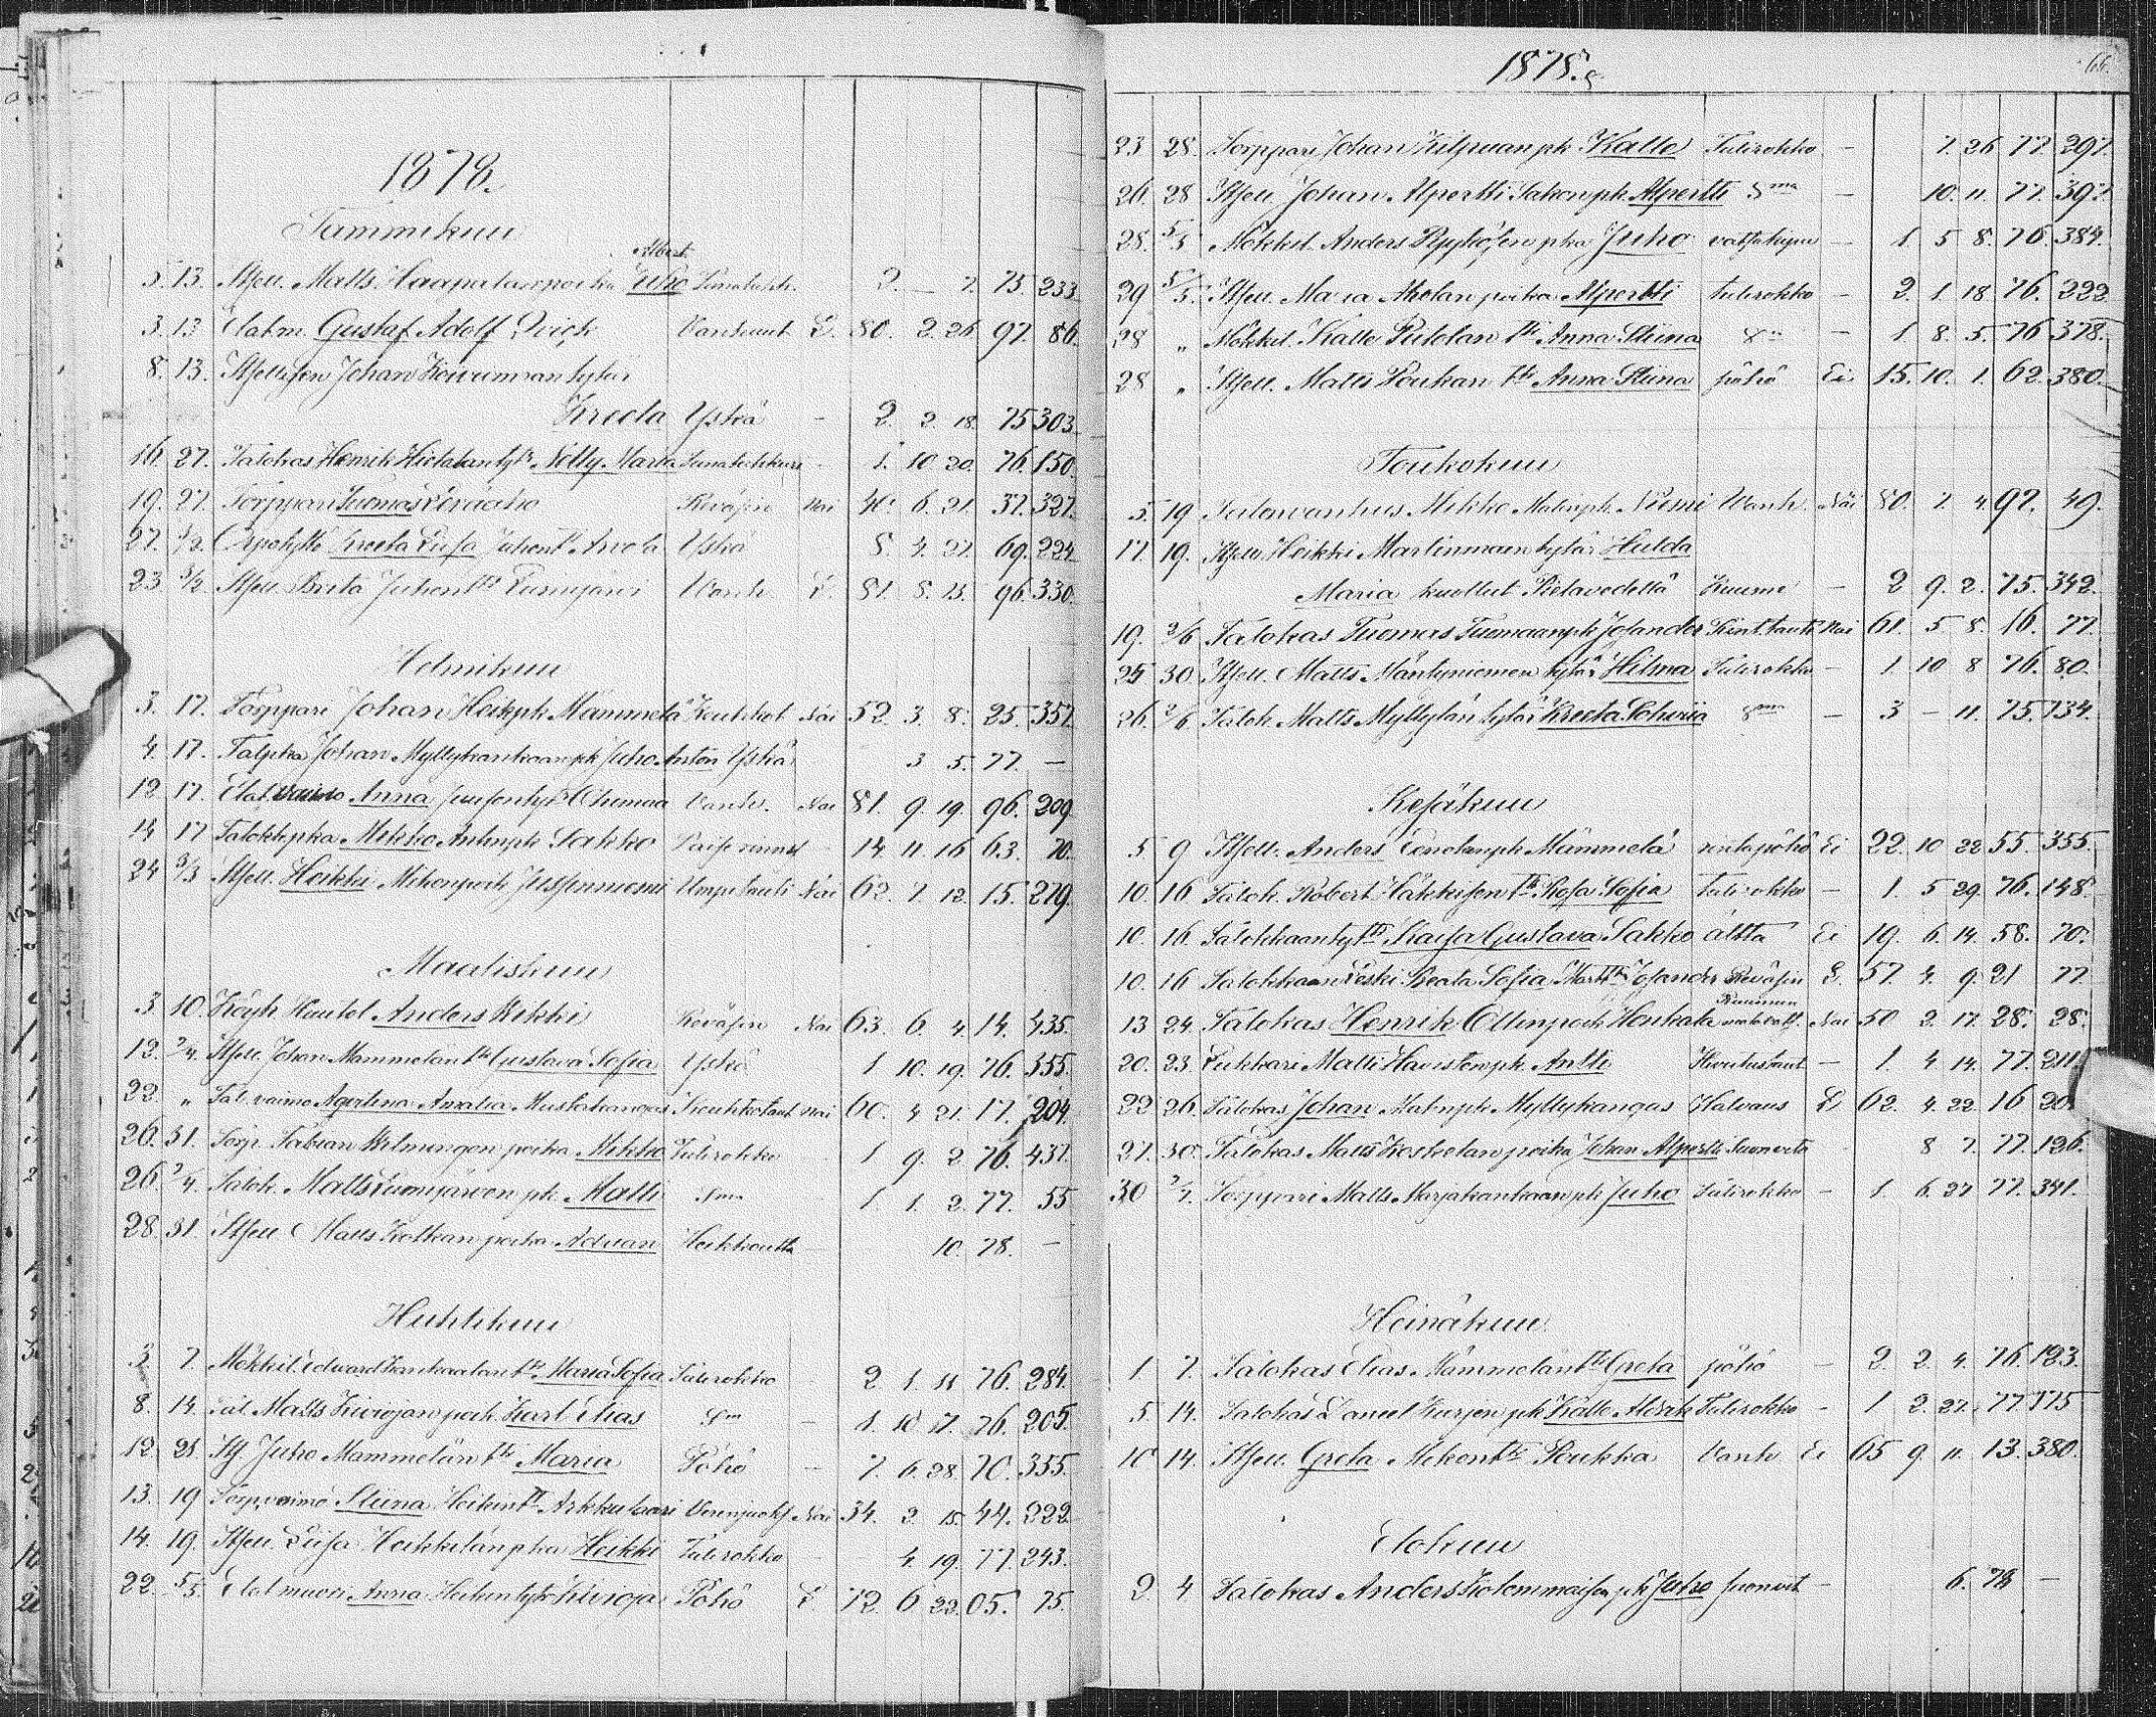 1878.
Tammikuu
Albert
5. 13. Itsell. Matts Haapalan poika Juho 2. — 7. 75. 233
3. 13 Elatm. Gustaf Adolf Qvick Vanhuut. L. 80. 2. 26 97. 86.
8. 13. Itsellisen Johan Koivuman tytär
Kreeta Yskä - 2. 2. 18. 75 303.
16 27. Talokas Henrik Hietalan tytr Nelly Maria - 1. 10. 20. 76. 150.
19. 27. Torppari Tuomas Peräaho Keväjin Nai 40. 6. 21. 37. 327.
27. 3/2. Kreeta Liisa Juhont. Arvola Yskä 8. 4. 27. 69. 224
23 3/2. Itsell. Brita Juhontr Lumijärvi Vanh. L. 81. 8. 15. 96. 330.
Helmikuu
3. 17. Torppari Johan Heikpk Mämmelä Keuhkot. Nai 52. 3. 8. 25. 357.
4. 17. Talpka Johan Myllykankaan pk Juho Anton Yskä 3 5. 77. —
12 17. Elat. vaimo Anna Vanh. Nai 81. 9. 19. 96. 209
14 17 Talokk. pka Mikko Antinpk Sakko 14. 11. 16 63. 70.
24 3/3 Itsell. Heikki Mikonpoik Jussinniemi Umpitauti Nai 62. 7. 12. 15. 279.
Maaliskuu
3 10. Anders Kikki Keväjin Nai 63. 6. 4. 14. 435.
12. 7/4. Itsell. Johan Mämmelän tr Gustava Sofia Yskä 1 10. 19. 76. 355.
22. „ Tal. vaimo Agatena Amalia Mustakangas Keuhkotaut Nai 60. 4. 21. 17. 204.
26. 31. Torp. Fabian poika Mikko Tulirokko 1 9. 2. 76. 437.
26. 7/4. Talok. Matts Lumijärven pk. Matti Dma 1. 1. 2. 77. 55
28. 31. Itsell Matts Kotkan poika Adrian 10. 78. —
Huhtikuu
3 7 Mökkil. Edward Kankaalan tr Maria Sofia Tulirokko 2 1. 11 76. 284.
8. 14. Tal Matts Kiviojan poik. Karl Elias Dma - 1. 10 17. 76. 205.
12 21. Its. Juho Mämmelän tr Maria Pöhö - 7. 6. 28. 70. 355.
13. 19 Torp. vaimo Stiina Heikint Arkkukari Verenjuoks. Nai 34. 2. 15. 44. 222
14. 19. Itsell. Liisa Heikkilän pka Heikki Tulirokko 4. 19. 77. 243.
22. 5/5. Elat muori Anna Heikin tytr Kivioja Pöhö L. 72. 6 22. 05. 75.
1878.
66.
23 28. Torppari Johan Kilpuan pk Kalle Tulirokko - 7. 26 77. 297.
26. 28 Itsell. Johan Alpertti Sakon pk. Alpertti Dma - 10. 11. 77. 397
28. 5/5 Mökkil. Anders pka Juho - 1 5 8. 76. 384.
29 5/5. Itsell. Maria Aholan poika Alpertti tulirokko - 2. 1. 18. 76. 222
28 „ Mökkil. Kalle Putolan tr Anna Stiina - 1 8. 5. 76 378.
28 „ Itsell. Matts Loukan tr Anna Stiina pöhö Ei 15. 10. 1. 62. 380.
Toukokuu
5. 19 Talonvanhus Mikko Matinpk. Niemi Vanh. Nai 80. 7. 4. 97. 49.
17. 19. Itsell. Heikki Martinmaen tytär Hulda
Maria kuollut Pielavedellä Kuume - 2 9. 2. 75. 342.
19. 2/6 Talokas Tuomas Tuomaan pk Josander Nai 61. 5 8. 16. 77.
25 30. Itsell. Matts Mäntyniemen tytär Hilma Tulirokko - 1. 10 8 76. 80.
26. 2/6 Talok. Matts Myllylän tytär Kreeta Dma - 3 - 11. 75. 134.
Kesäkuu
5. 9 Itsell. Anders pk Mämmelä rintapöhö Ei 22. 10 22 55. 355.
10. 16 Talok. Robert Häkkisen tr Rosa Sofia tulirokko - 1. 5 29. 76. 148.
10. 16. Talokkaan tytr Kaisa Gustava Sakko Ei 19. 6. 14. 58. 70.
10. 16 Talokkaan Leski Beata Sofia Josander Keväjin L. 57. 4. 9. 21 77
13 24. Talokas Henrik Ollinpoik Honkala Nai 50 2. 17. 28. 28.
20. 23. Lukkari Matti Haviston pk. Antti - 1. 4 14. 77. 211.
22 26. Talokas Johan Matinpk Myllykangas Halvaus L 62. 4. 22. 16 20
27. 30. Talokas Matts Koskelan poika Johan Alpertti Suonveto 8 7. 77. 126.
30 7/7. Torppari Matts Marjakankaan pk Juho Tulirokko - 1. 6. 27 77. 341.
Heinäkuu
1. 7. Talokas Elias Mämmelän tr Greta pöhö - 2. 2. 4. 76. 123.
5. 14. Talokas Daniel Kurjen pk Kalle Alfrik Tulirokko - 1 2. 27. 77 175
10 14. Itsell. Greta Mikon tr Loukka Vanh. Ei 65 9. 11. 13. 380.
Elokuu
2. 4 Talokas Anders Kolemmaisen pk Juho suonvet - 6. 78 —